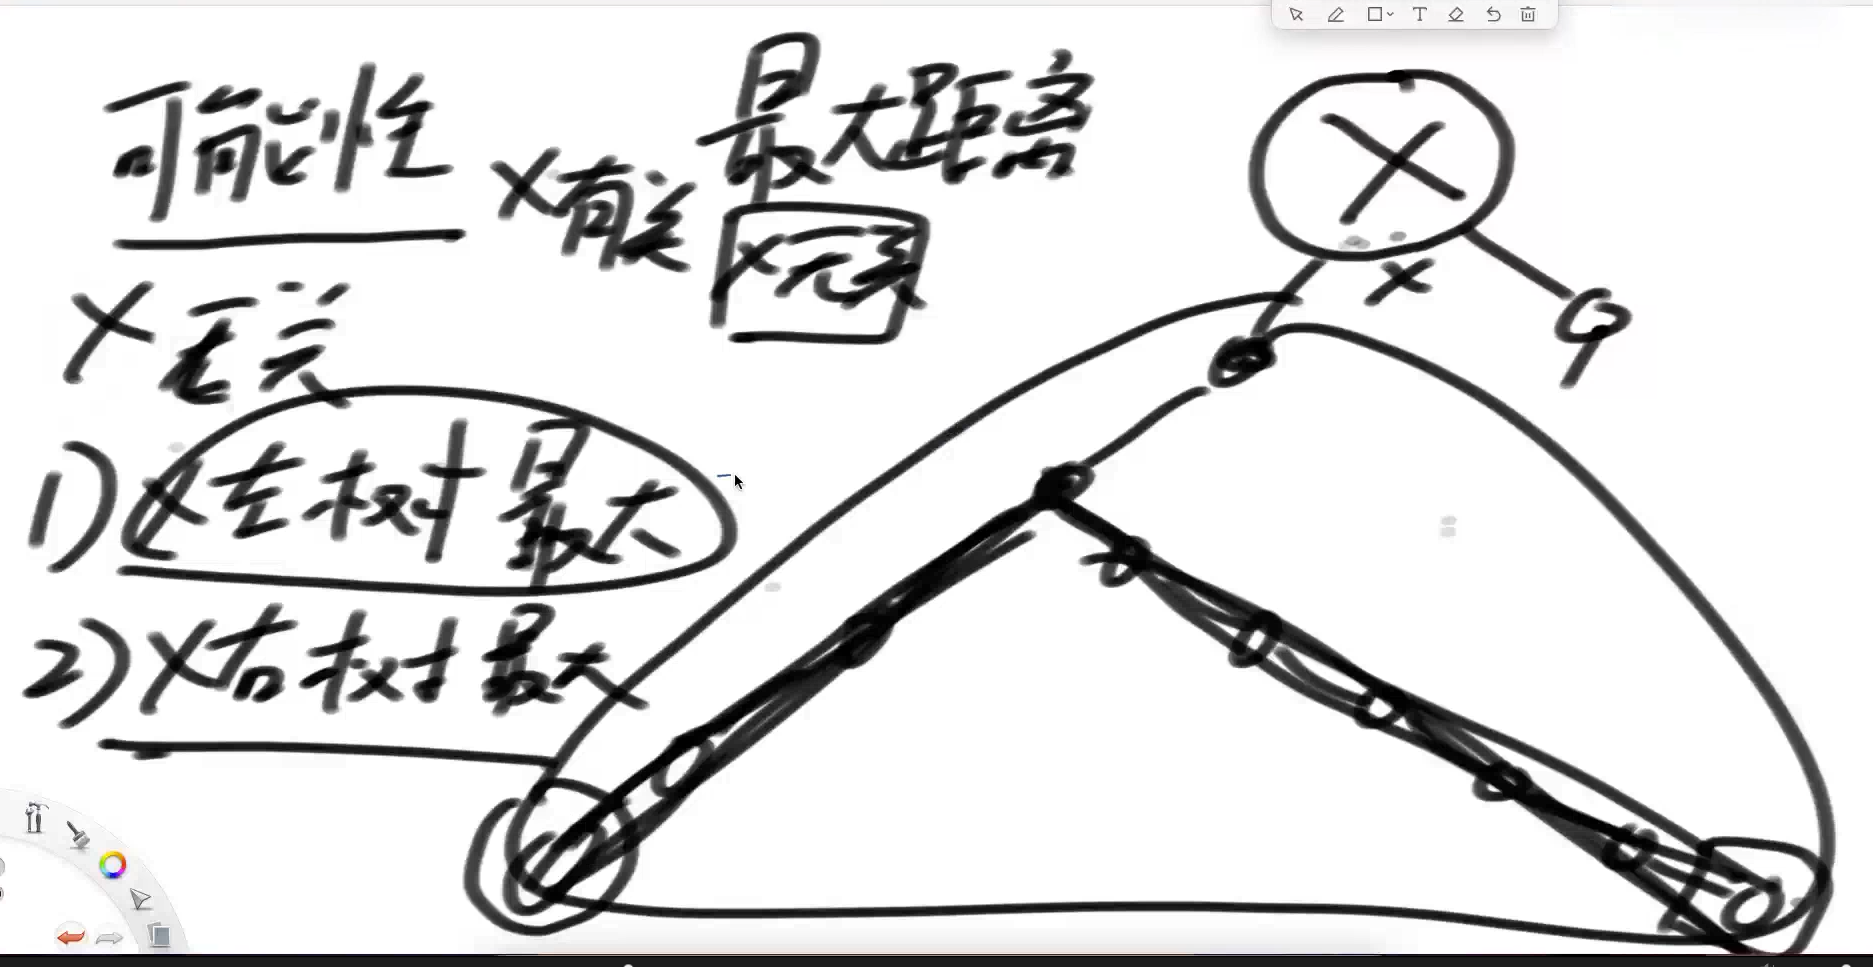 可能性
X有关
最大距离
X无关
X无关
1) X左树最大
2) X右树最大
X
x